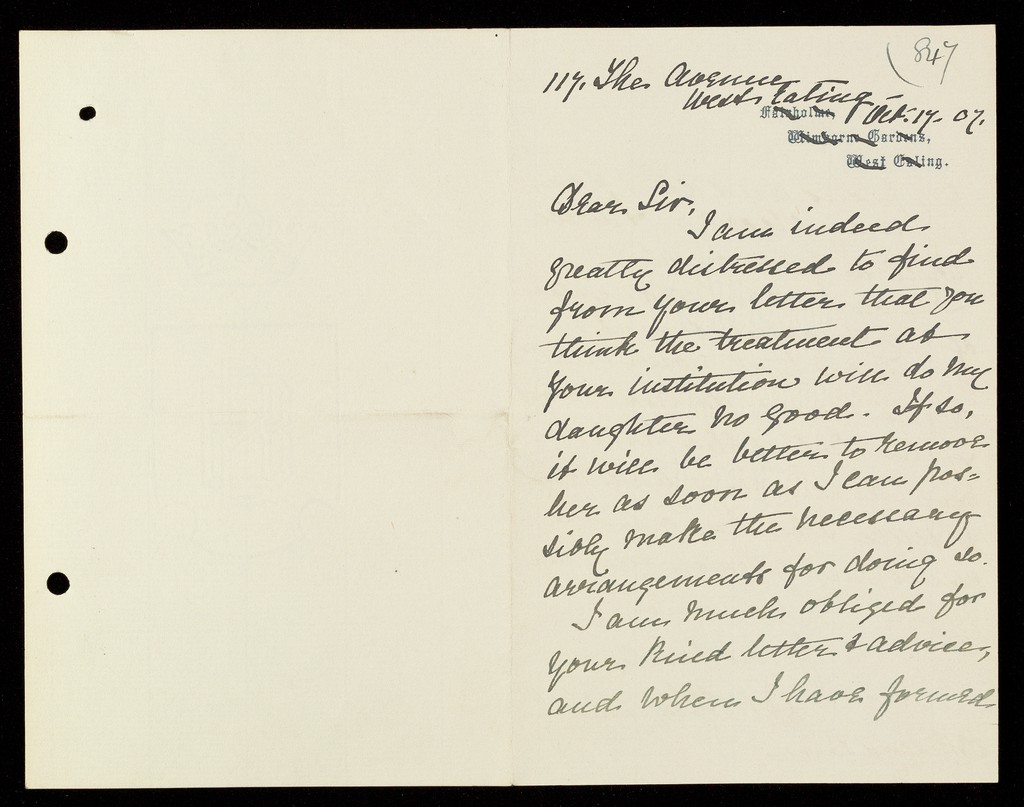 (847
117. The Avenue
West Ealing -
Oct. 17. 07.
Fairholme,
Wimborne Gardens,
West Ealing.
Dear Sir,
I am indeed
greatly distressed to find
from your letter that you
think the treatment at
your institution will do my
daughter no good. If so,
it will be better to remove
her as soon as I can pos=
sibly make the necessary
arrangements for doing so.
I am much obliged for
your kind letter & advice,
and when I have formed